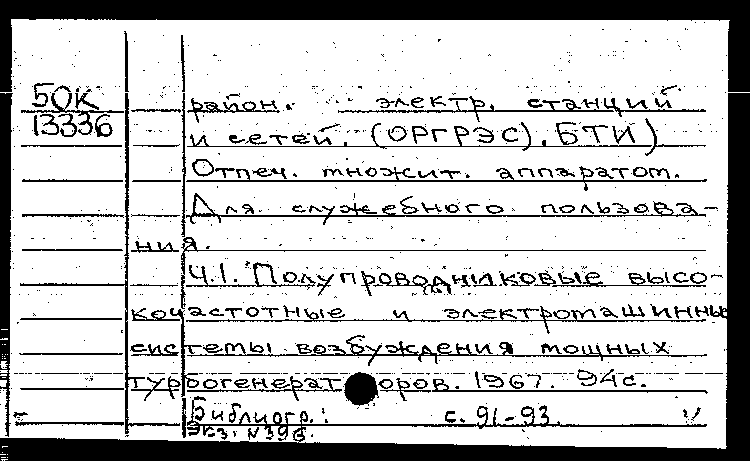 БОК
13336
район. электр. станций
и сетей. (ОРГРЭС). БТИ)
Отпеч. множит. аппаратом.
Для служебного пользова-
ния.
Ч.1. Полупроводниковые высо-
кочастотные и электромашинные
системы возбуждения мощных
турбогенераторов. 1967. 94с.
Библиогр.: с. 91-93.
Экз. №396.